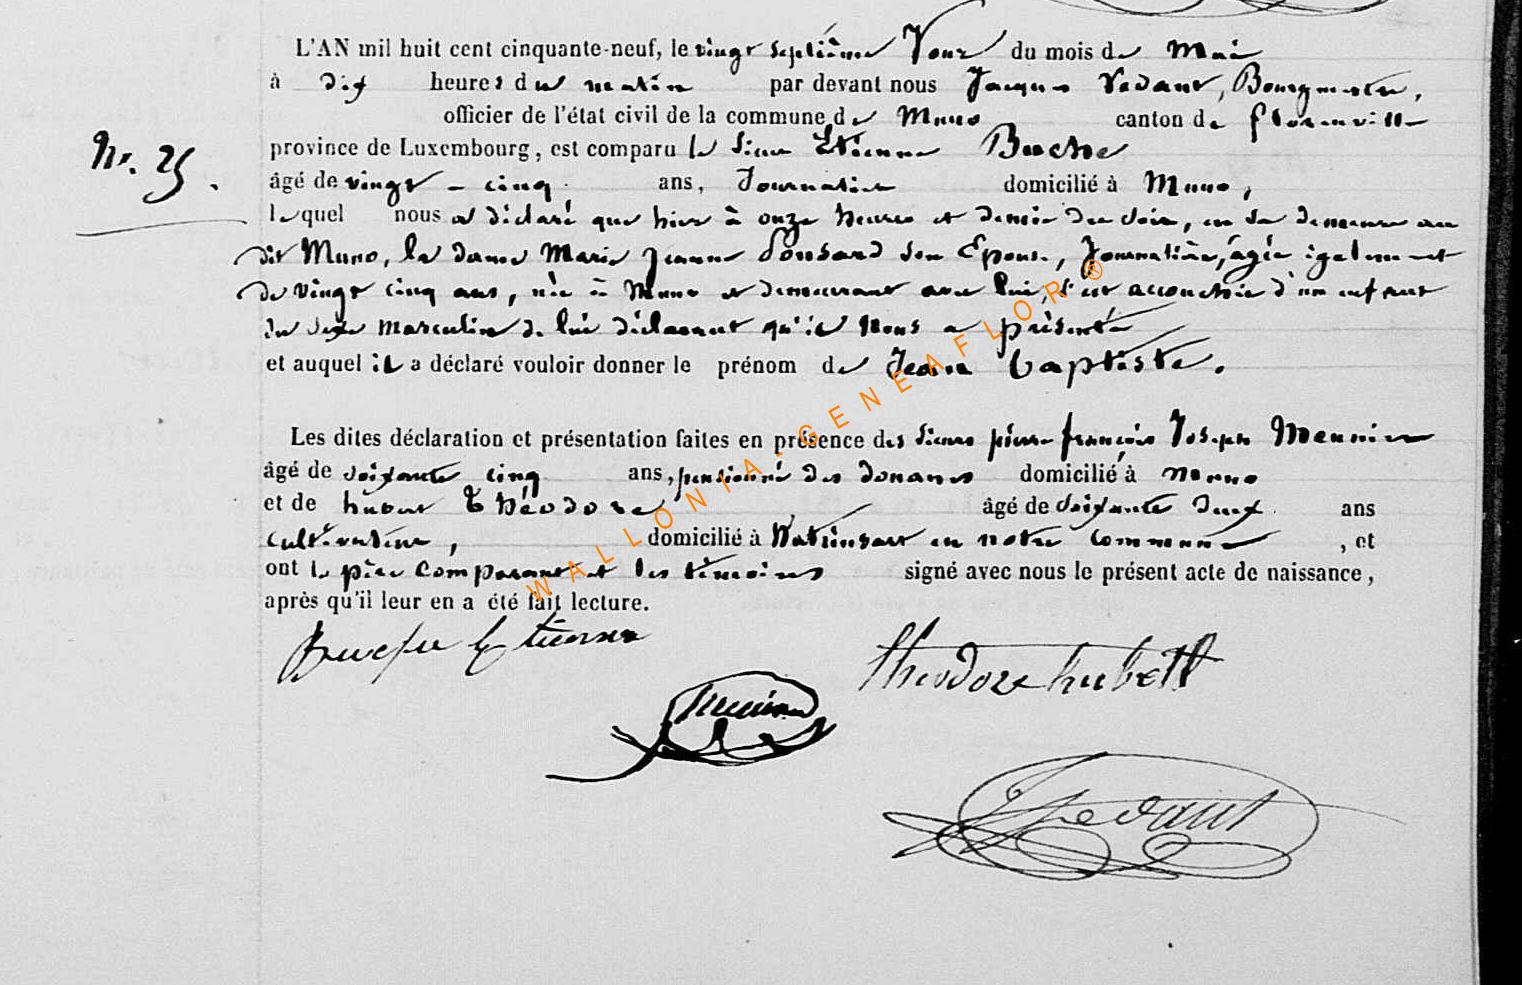 L'AN mil huit cent cinquante-neuf, le vingt septième Jour du mois de Mai
à dix heures du matin par devant nous Jacques Pedant, Bourgmestre,
officier de l'état civil de la commune de Muno canton de florenville
Nr. 25.
province de Luxembourg, est comparu le Sieur Etienne Buche
âgé de vingt-cinq ans, Journalier domicilié à Muno,
lequel nous a déclaré que hier à onze heures et demie du soir, en sa demeure au
dit Muno, la dame Marie Jeanne Ponsard son Epouse, Journalière, âgée également
de vingt cinq ans, née à Muno et demeurant avec lui, s'est accouchée d'un enfant
du sexe masculin de lui déclarant qu'il nous a présenté
et auquel il a déclaré vouloir donner le prénom de Jean baptiste.
Les dites déclaration et présentation faites en présence des Sieurs pierre françois Joseph Meunier
âgé de soixante cinq ans, pensionné des douanes domicilié à Muno
et de hubert Théodore, âgé de soixante deux ans
cultivateur, domicilié à Watrinsart en notre commune, et
ont le père Comparant et les témoins signé avec nous le présent acte de naissance,
après qu'il leur en a été fait lecture.
Buche Etienne
théodore hubert
Meunier
J Pedant
WALLONIA-GENEAFLOR ®